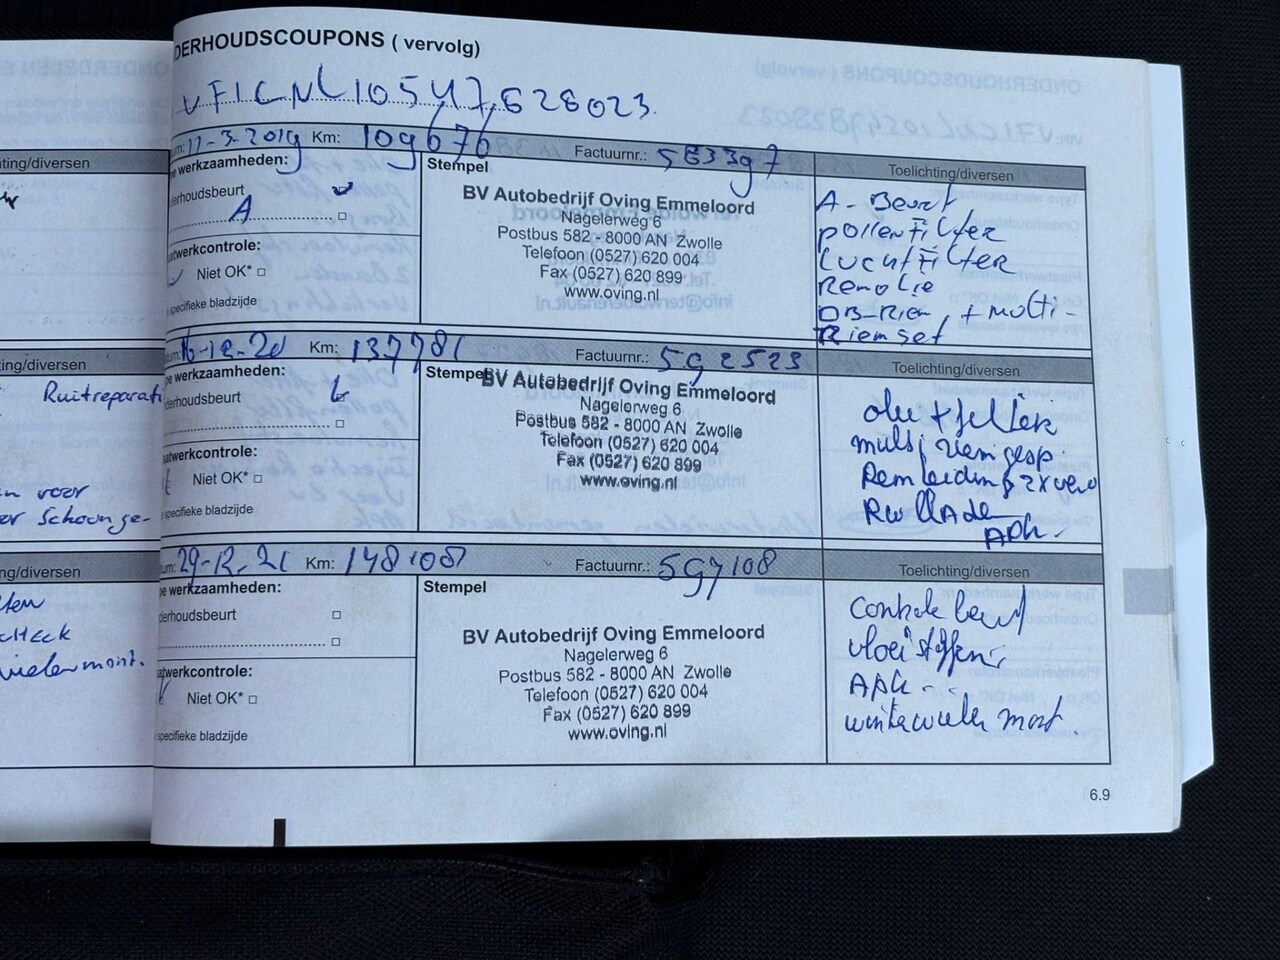 DERHOUDSCOUPONS ( vervolg)
Km: 109676 Factuurnr.: 563397
ting/diversen
werkzaamheden:
derhoudsbeurt
A □
aatwerkcontrole:
Niet OK* □
specifieke bladzijde
Stempel
BV Autobedrijf Oving Emmeloord
Nagelerweg 6
Postbus 582 - 8000 AN Zwolle
Telefoon (0527) 620 004
Fax (0527) 620 899
www.oving.nl
Toelichting/diversen
A - Beurt
pollenfilter
Luchtfilter
Remolie
DB-Riem + multi-
Riemset
Km: 137781 Factuurnr.: 592523
ing/diversen
Ruitreparati
en voor
or Schoonge-
werkzaamheden:
derhoudsbeurt
□
aatwerkcontrole:
Niet OK* □
specifieke bladzijde
Stempel
BV Autobedrijf Oving Emmeloord
Nagelerweg 6
Postbus 582 - 8000 AN Zwolle
Telefoon (0527) 620 004
Fax (0527) 620 899
www.oving.nl
Toelichting/diversen
olie + filter
Remleiding 2x
APK -
29-12-21 Km: 148108 Factuurnr.: 597108
ng/diversen
check
wielen mont.
werkzaamheden:
derhoudsbeurt □
□
aatwerkcontrole:
Niet OK* □
specifieke bladzijde
Stempel
BV Autobedrijf Oving Emmeloord
Nagelerweg 6
Postbus 582 - 8000 AN Zwolle
Telefoon (0527) 620 004
Fax (0527) 620 899
www.oving.nl
Toelichting/diversen
Controle beurt
vloeistoffen
APK -
winterwielen mont.
6.9